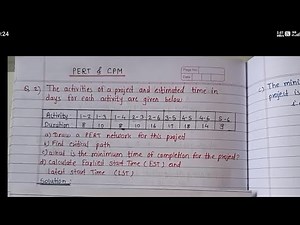 :24
PERT & CPM
Q.1) The activities of a project and estimated time in
days for each activity are given below
Activity 1-2 1-3 1-4 2-3 2-6 3-5 4-5 4-6 5-6
Duration 8 10 8 10 16 17 18 14 9
a) Draw a PERT network for this project
b) Find critical path
c) what is the minimum time of completion for the project?
d) Calculate Earliest start Time (EST) and
latest start Time (LST)
Solution:
c) The mini
project is